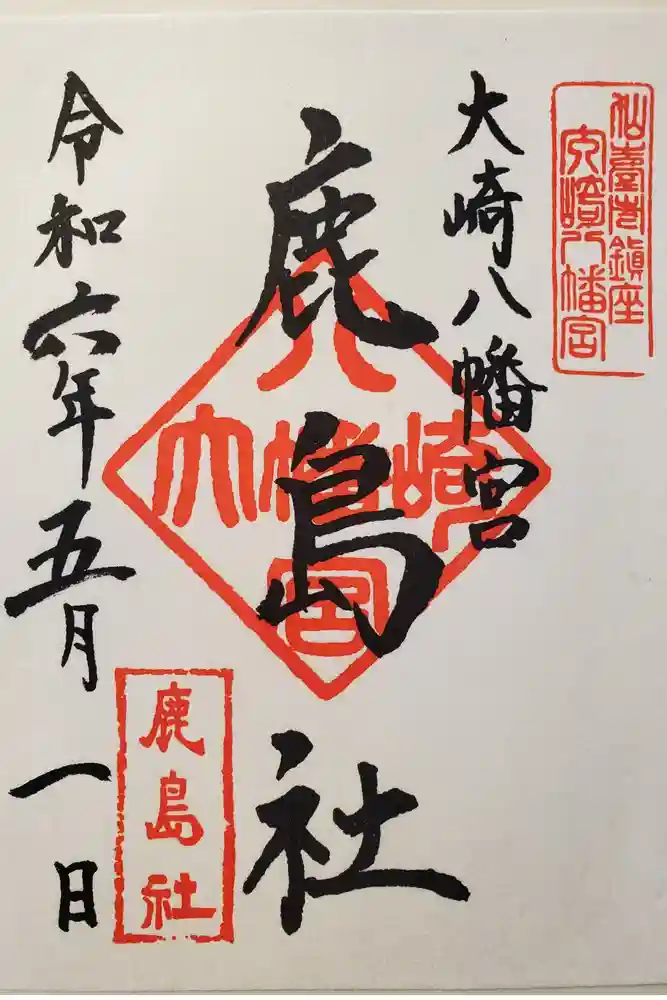 仙臺總鎮座
大崎八幡宮
大崎八幡宮
鹿島社
八
大幡崎
宮
鹿島社
令和六年五月一日